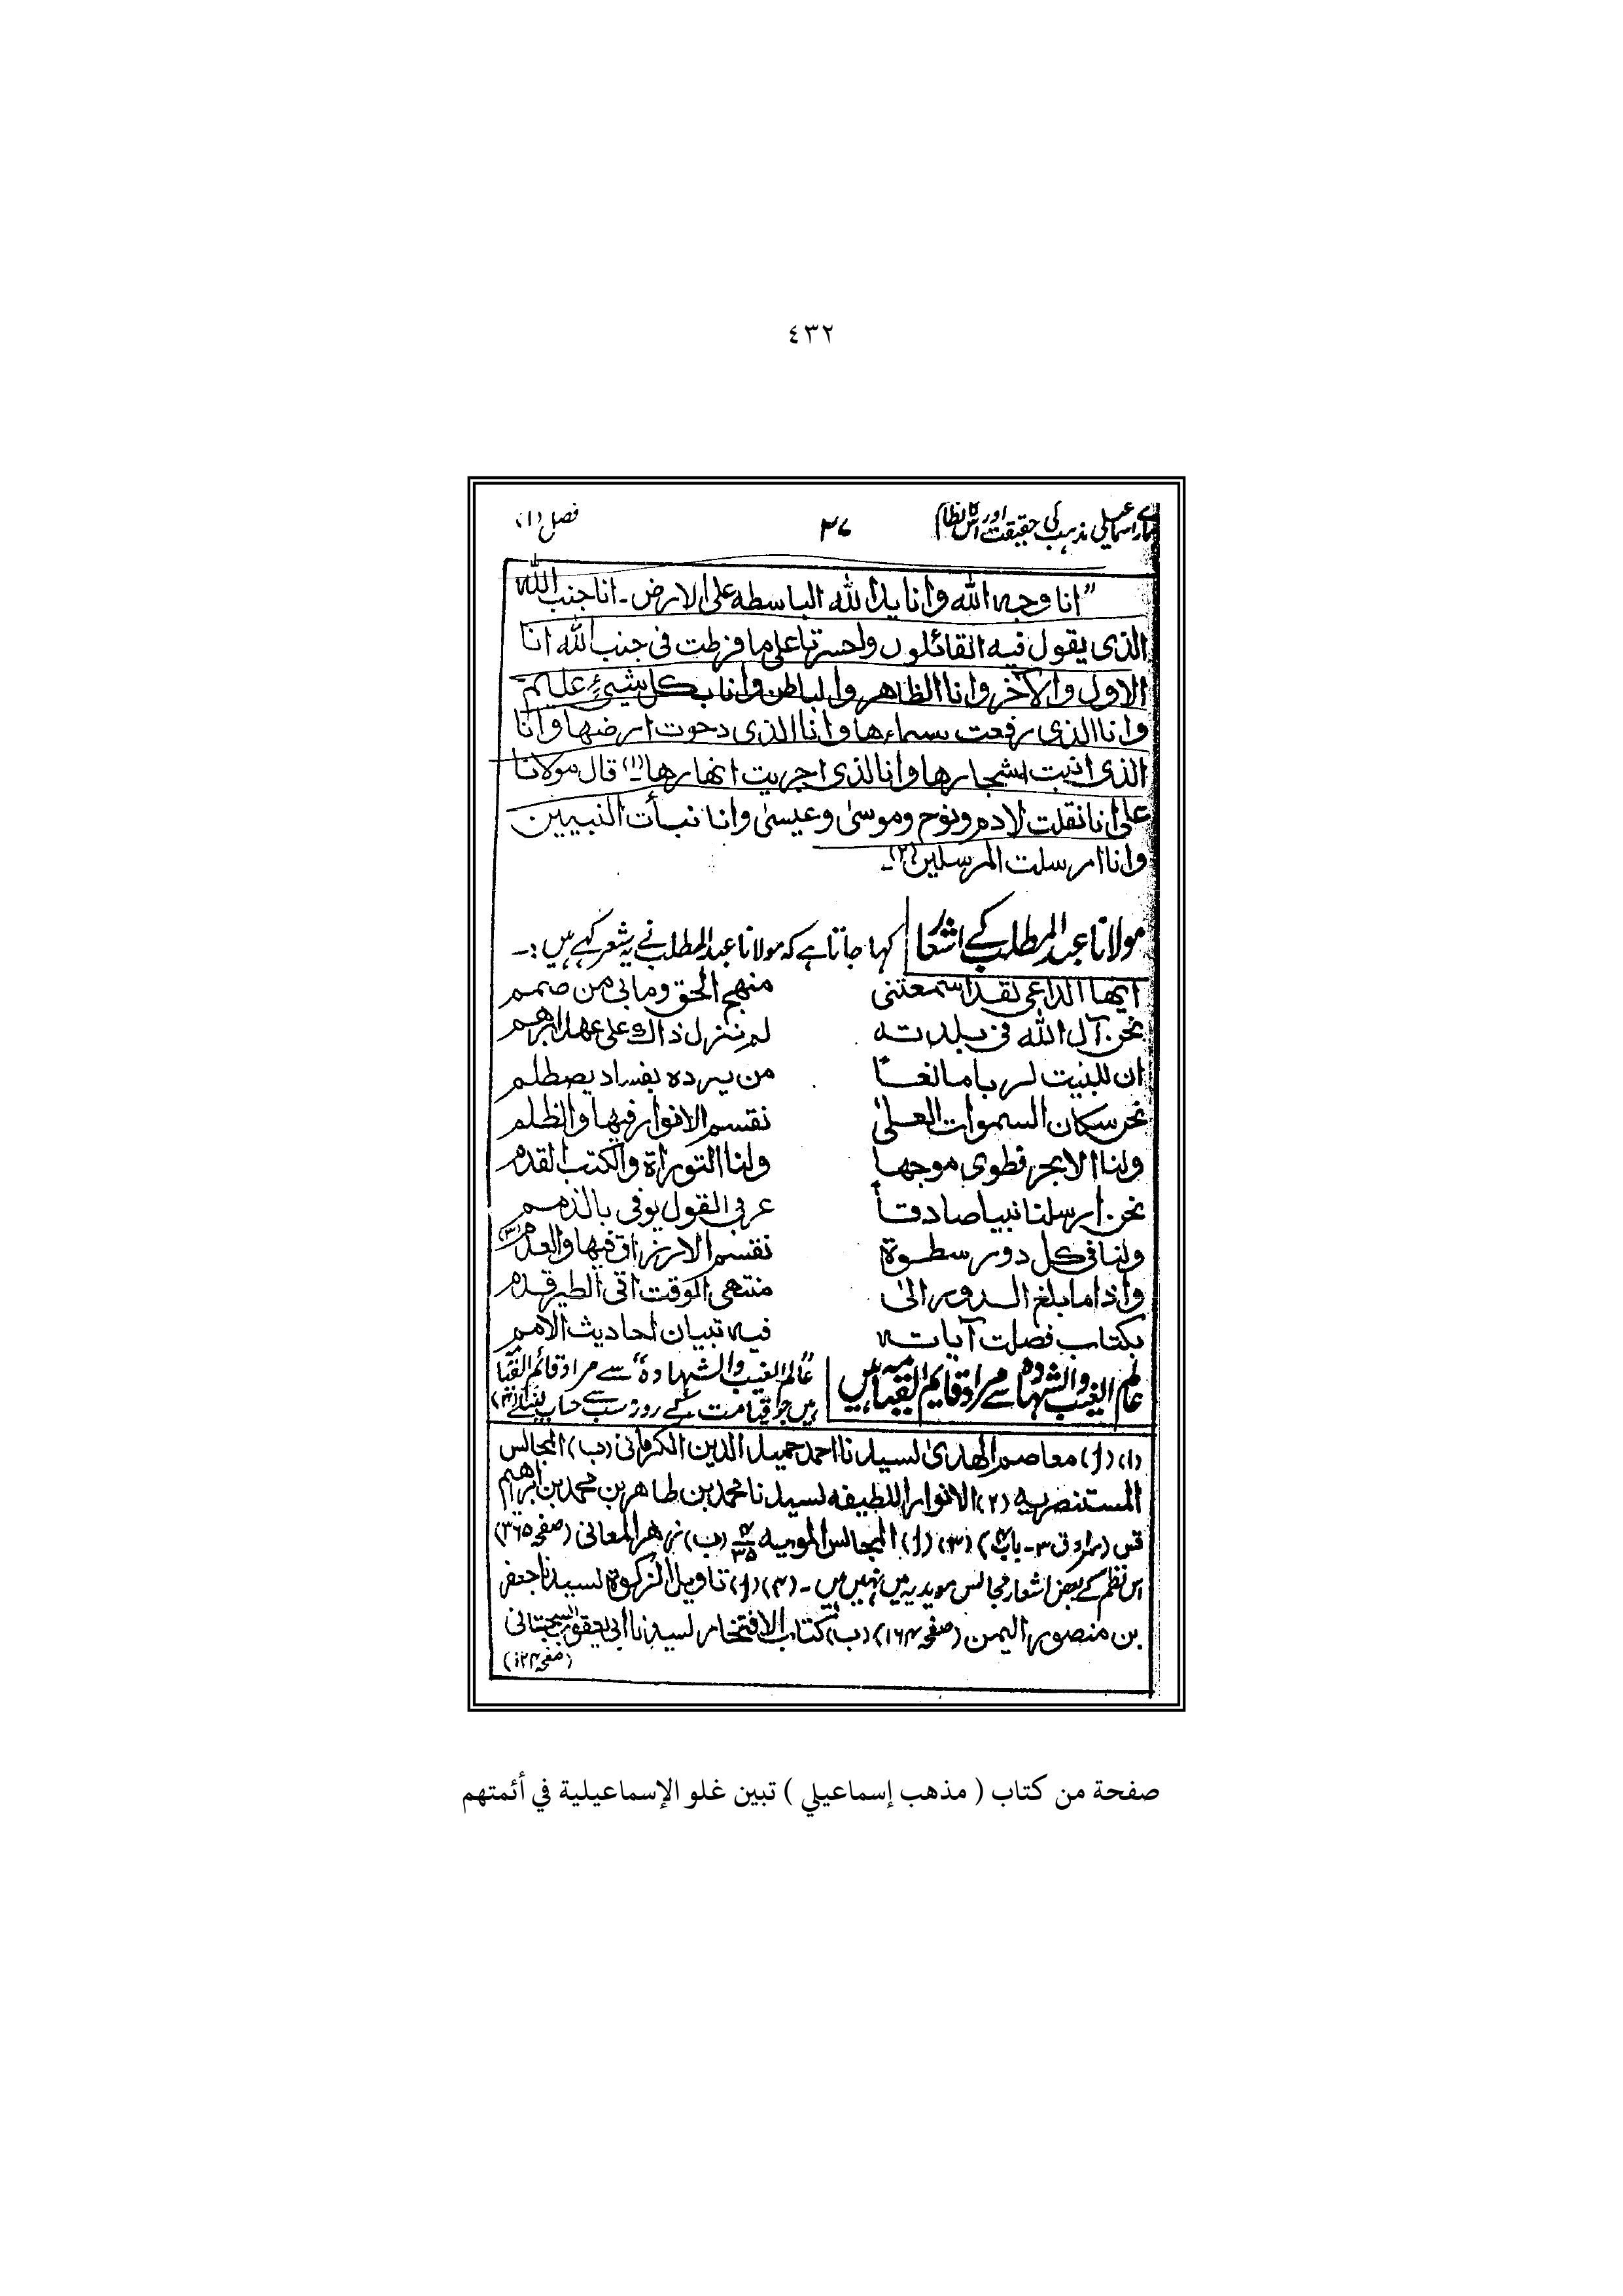 ٤٣٢
ہمارے اسماعیلی مذہب کی حقیقت اور اس کا نظام ٣٧ فصل (١)
”انا وجہ اللہ وانا ید اللہ الباسطہ علی الارض۔ انا جنب اللہ
الذی یقول فیہ القائلون واحسرتا علی ما فرطت فی جنب اللہ انا
الاول والآخر وانا الظاهر والباطن وانا بکل شیئ علیم
وانا الذی رفعت سماءها وانا الذی دحوت ارضها وانا
الذی انبت اشجارها وانا لذی اجریت انهارها۔(١) قال مولانا
علی انا نقلت لادم ونوح وموسیٰ وعیسیٰ وانا نبأت النبیین
وانا ارسلت المرسلین (٢)۔
مولانا عبد المطلب کے اشعار کہا جاتا ہے کہ مولانا عبد المطلب نے یہ شعر کہے ہیں :۔
ایها الداعی لقد اسمعتنی منهج الحق وما بی من صمم
نحن آل اللہ فی بلدتہ لم نزل ذاك علی عهد ابرهم
ان للبیت لربا مانعاً من یردہ بفساد یصطلم
نحن سکان السموات العلیٰ نقسم الانوار فیها والظلم
ولنا الابحر نطوی موجها ولنا التوراة والکتب القدم
نحن ارسلنا نبیا صادقاً عربی القول یوفی بالذمم
ولنا فی کل دور سطوة نقسم الارزاق فیها والعدم (٣)
واذا ما بلغ الدور الیٰ منتهی الوقت اتی الطیر قدم
بکتاب فصلت آیاتہ فیہ تبیان احادیث الامم
عالم الغیب والشهادہ سے مراد قائم القیامہ ہیں ”عالم الغیب والشهادة“ سے مراد قائم القیامہ
ہیں جو قیامت کے روز سب سے حساب لینگے (۴)
(١) (ا) معاصم الهدیٰ لسیدنا احمد حمید الدین الکرمانی (ب) المجالس
المستنصریہ (٢) الانوار اللطیفہ لسیدنا محمد بن طاهر بن محمد بن ابراهیم
قس (سرادق ٣۔ باب) (٣) (ا) المجالس المویدیہ (ب) زهر المعانی (صفحہ ٣٦٥)
اس نظم کے بعض اشعار مجالس مویدیہ میں نہیں ہیں ۔ (۴) (ا) تاویل الزکوة لسیدنا جعفر
بن منصور الیمن (صفحہ ١٦۴) (ب) کتاب الافتخار لسیدنا ابی یعقوب السجستانی
(صفحہ ١٢۴)
صفحة من كتاب ( مذهب إسماعيلي ) تبين غلو الإسماعيلية في أئمتهم